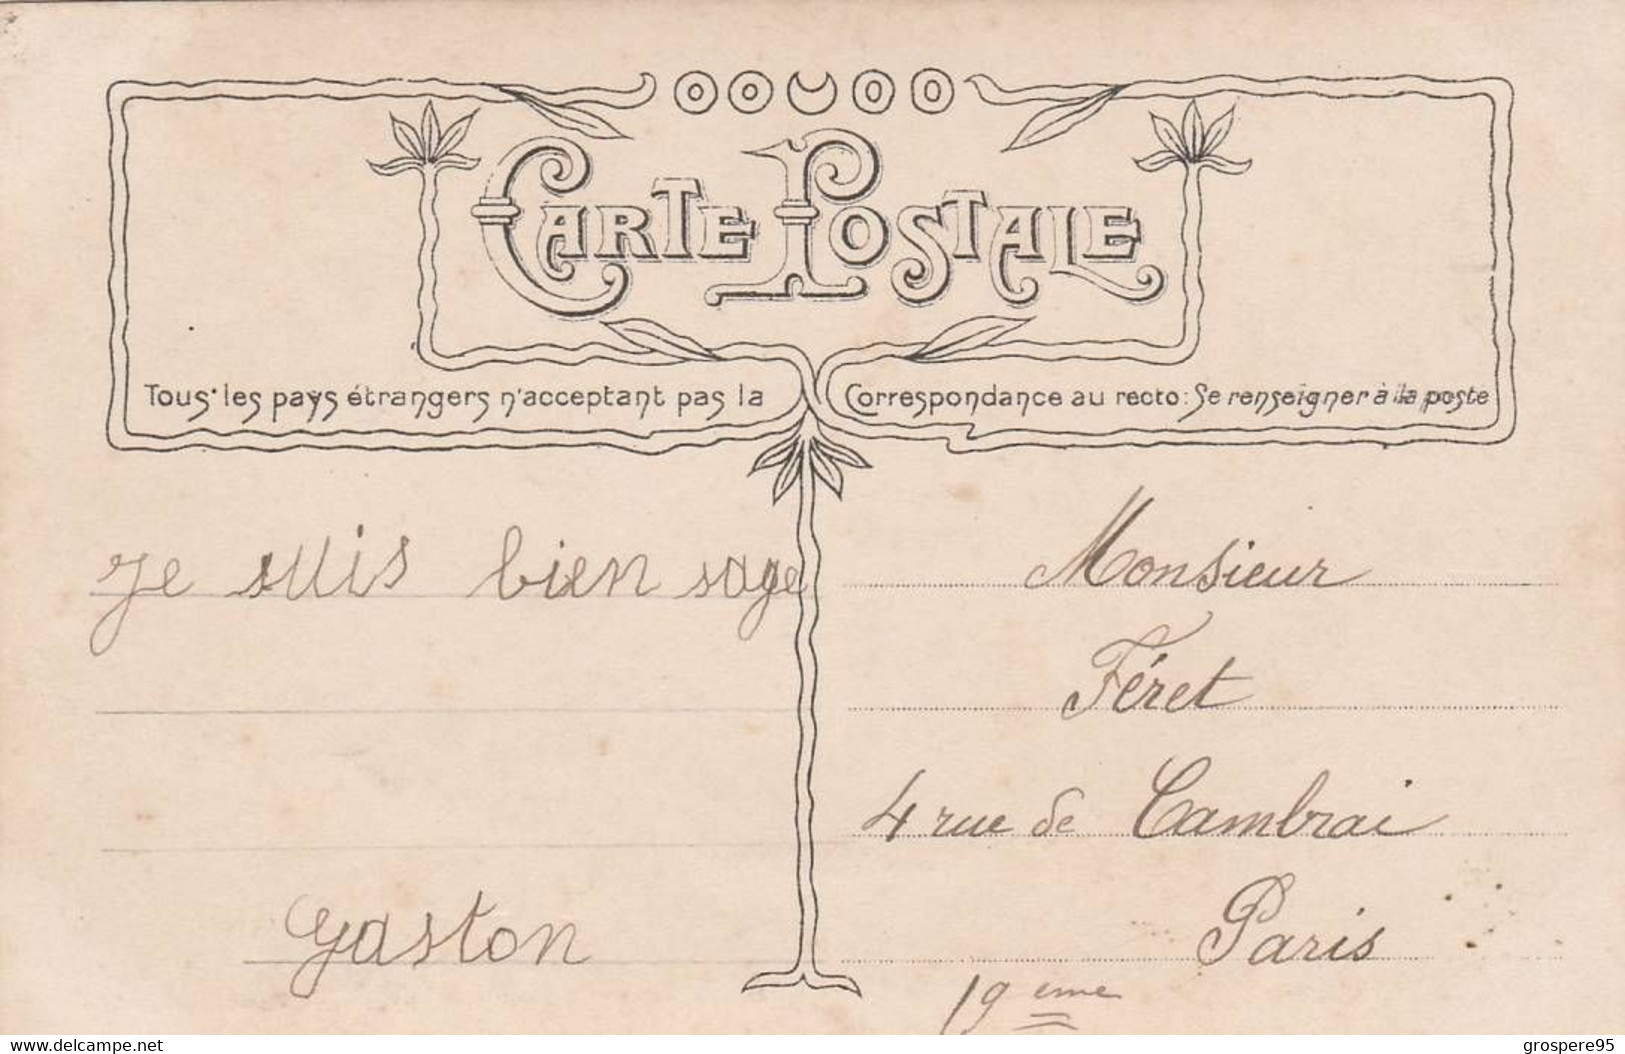 CARTE POSTALE
Tous les pays étrangers n'acceptant pas la Correspondance au recto: Se renseigner à la poste
Je suis bien sage
Gaston
Monsieur
Féret
4 rue de Cambrai
Paris
19 eme
www.delcampe.net
grospere95